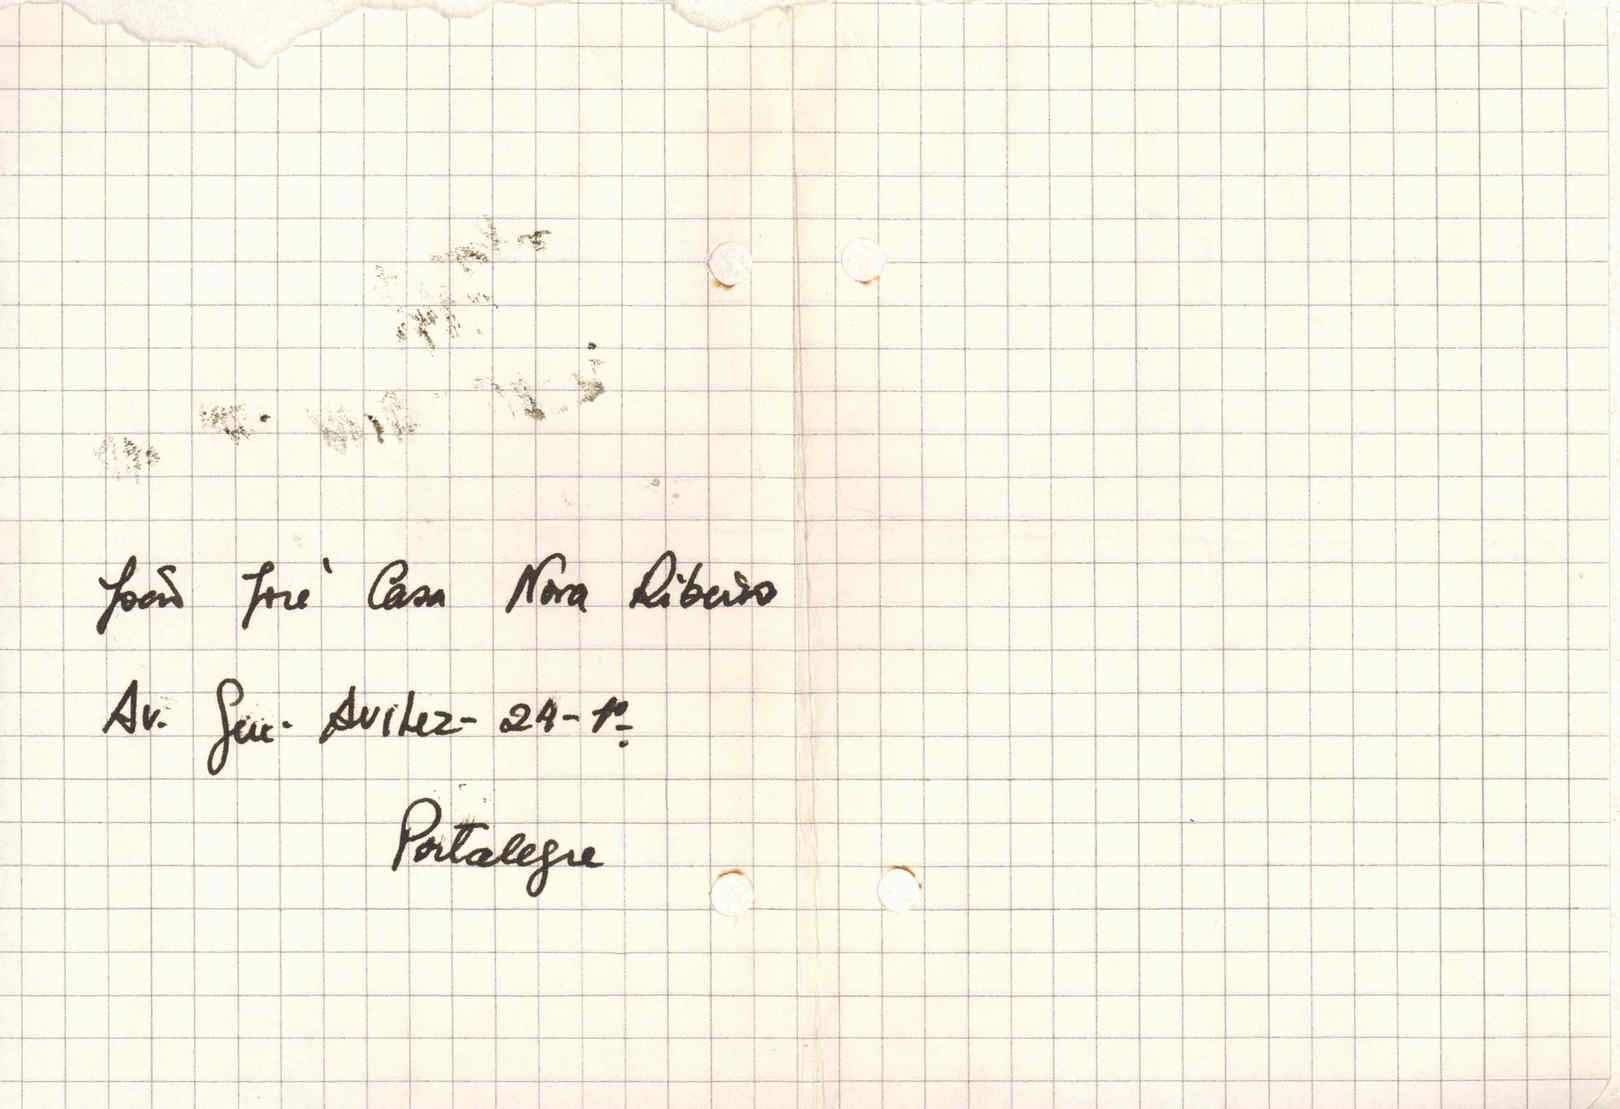 João José Casa Nova Ribeiro
Av. Gen. Avilez - 24 - 1º
Portalegre